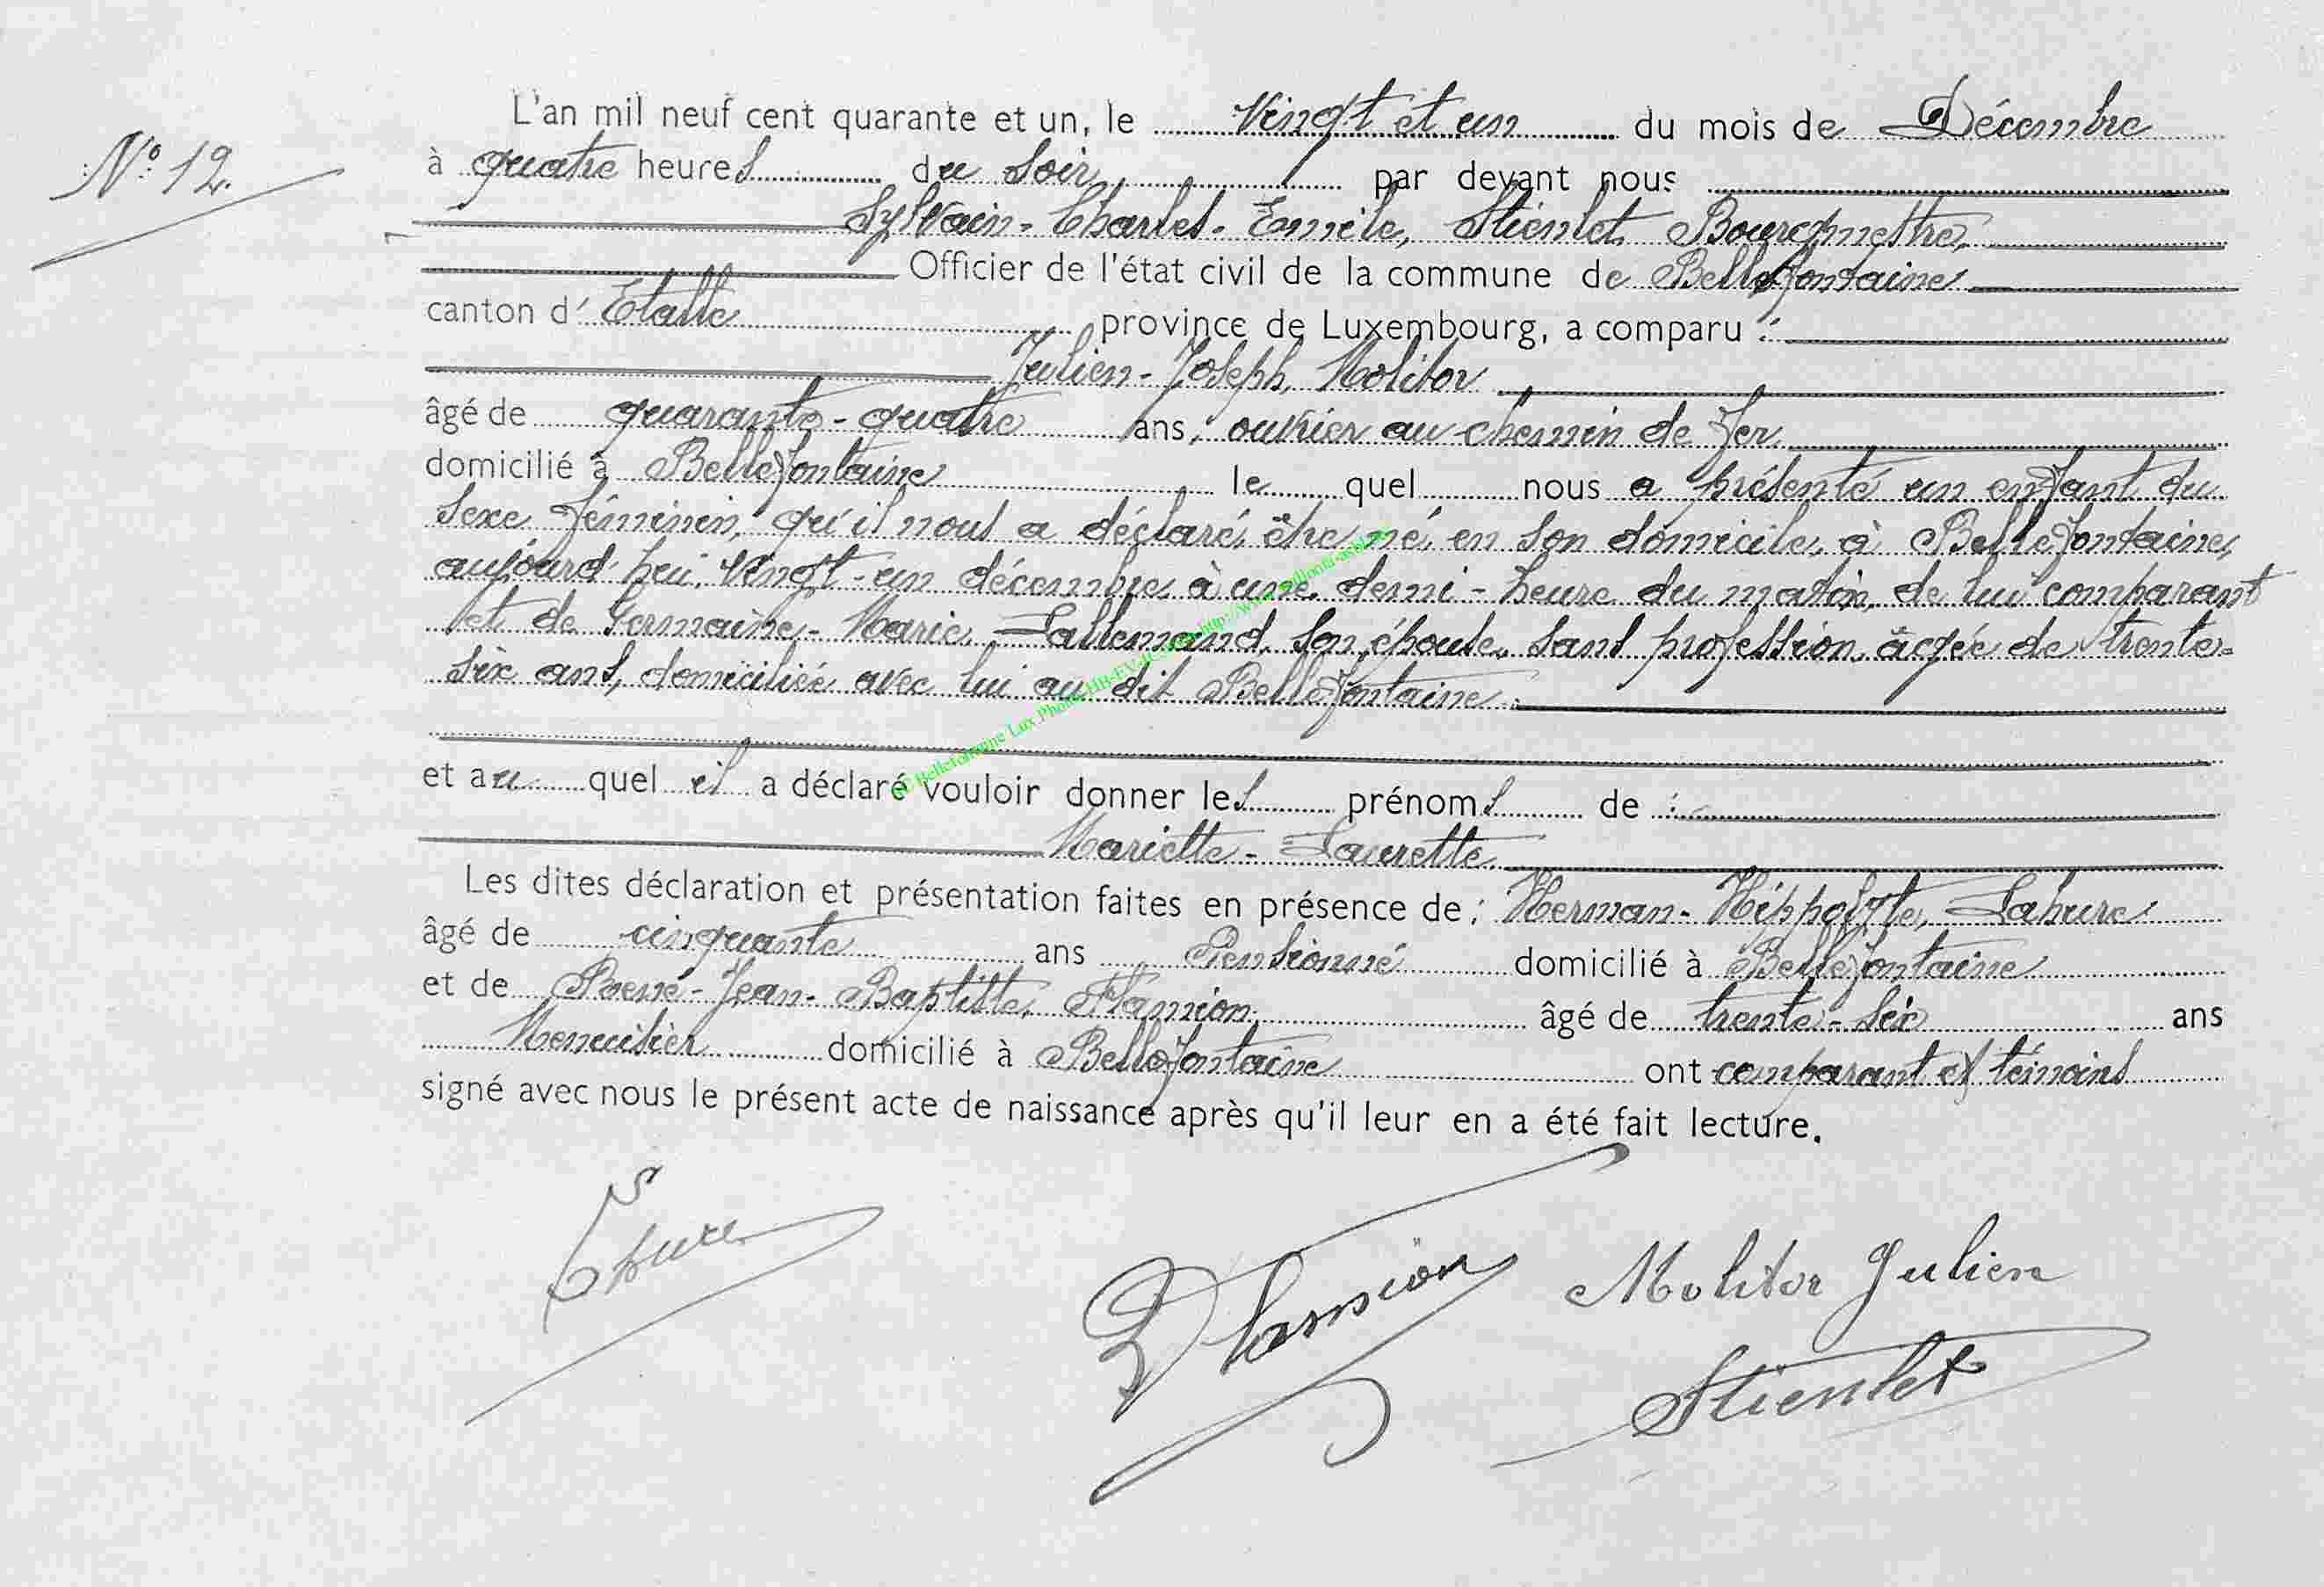 N° 12.
L'an mil neuf cent quarante et un, le vingt et un du mois de Décembre
à quatre heures du soir par devant nous
Sylvain-Charles-Emile, Stienlet, Bourgmestre,
Officier de l'état civil de la commune de Bellefontaine
canton d'Etalle province de Luxembourg, a comparu :
Julien-Joseph, Molitor
âgé de quarante-quatre ans, ouvrier au chemin de fer,
domicilié à Bellefontaine le quel nous a présenté un enfant du
sexe féminin, qu'il nous a déclaré, être né, en son domicile, à Bellefontaine,
aujourd'hui, vingt-un décembre, à une demi-heure du matin, de lui comparant
et de Germaine-Marie, Lallemand, son épouse, sans profession, âgée de trente-
six ans, domiciliée avec lui au dit Bellefontaine.
et au quel il a déclaré vouloir donner les prénoms de :
Mariette-Laurette.
Les dites déclaration et présentation faites en présence de : Herman-Hippolyte, Lahure
âgé de cinquante ans Pensionné domicilié à Bellefontaine
et de René-Jean-Baptiste, Hamion, âgé de trente-six ans
Menuisier domicilié à Bellefontaine ont comparant et témoins
signé avec nous le présent acte de naissance après qu'il leur en a été fait lecture.
Hamion
Molitor Julien
Stienlet